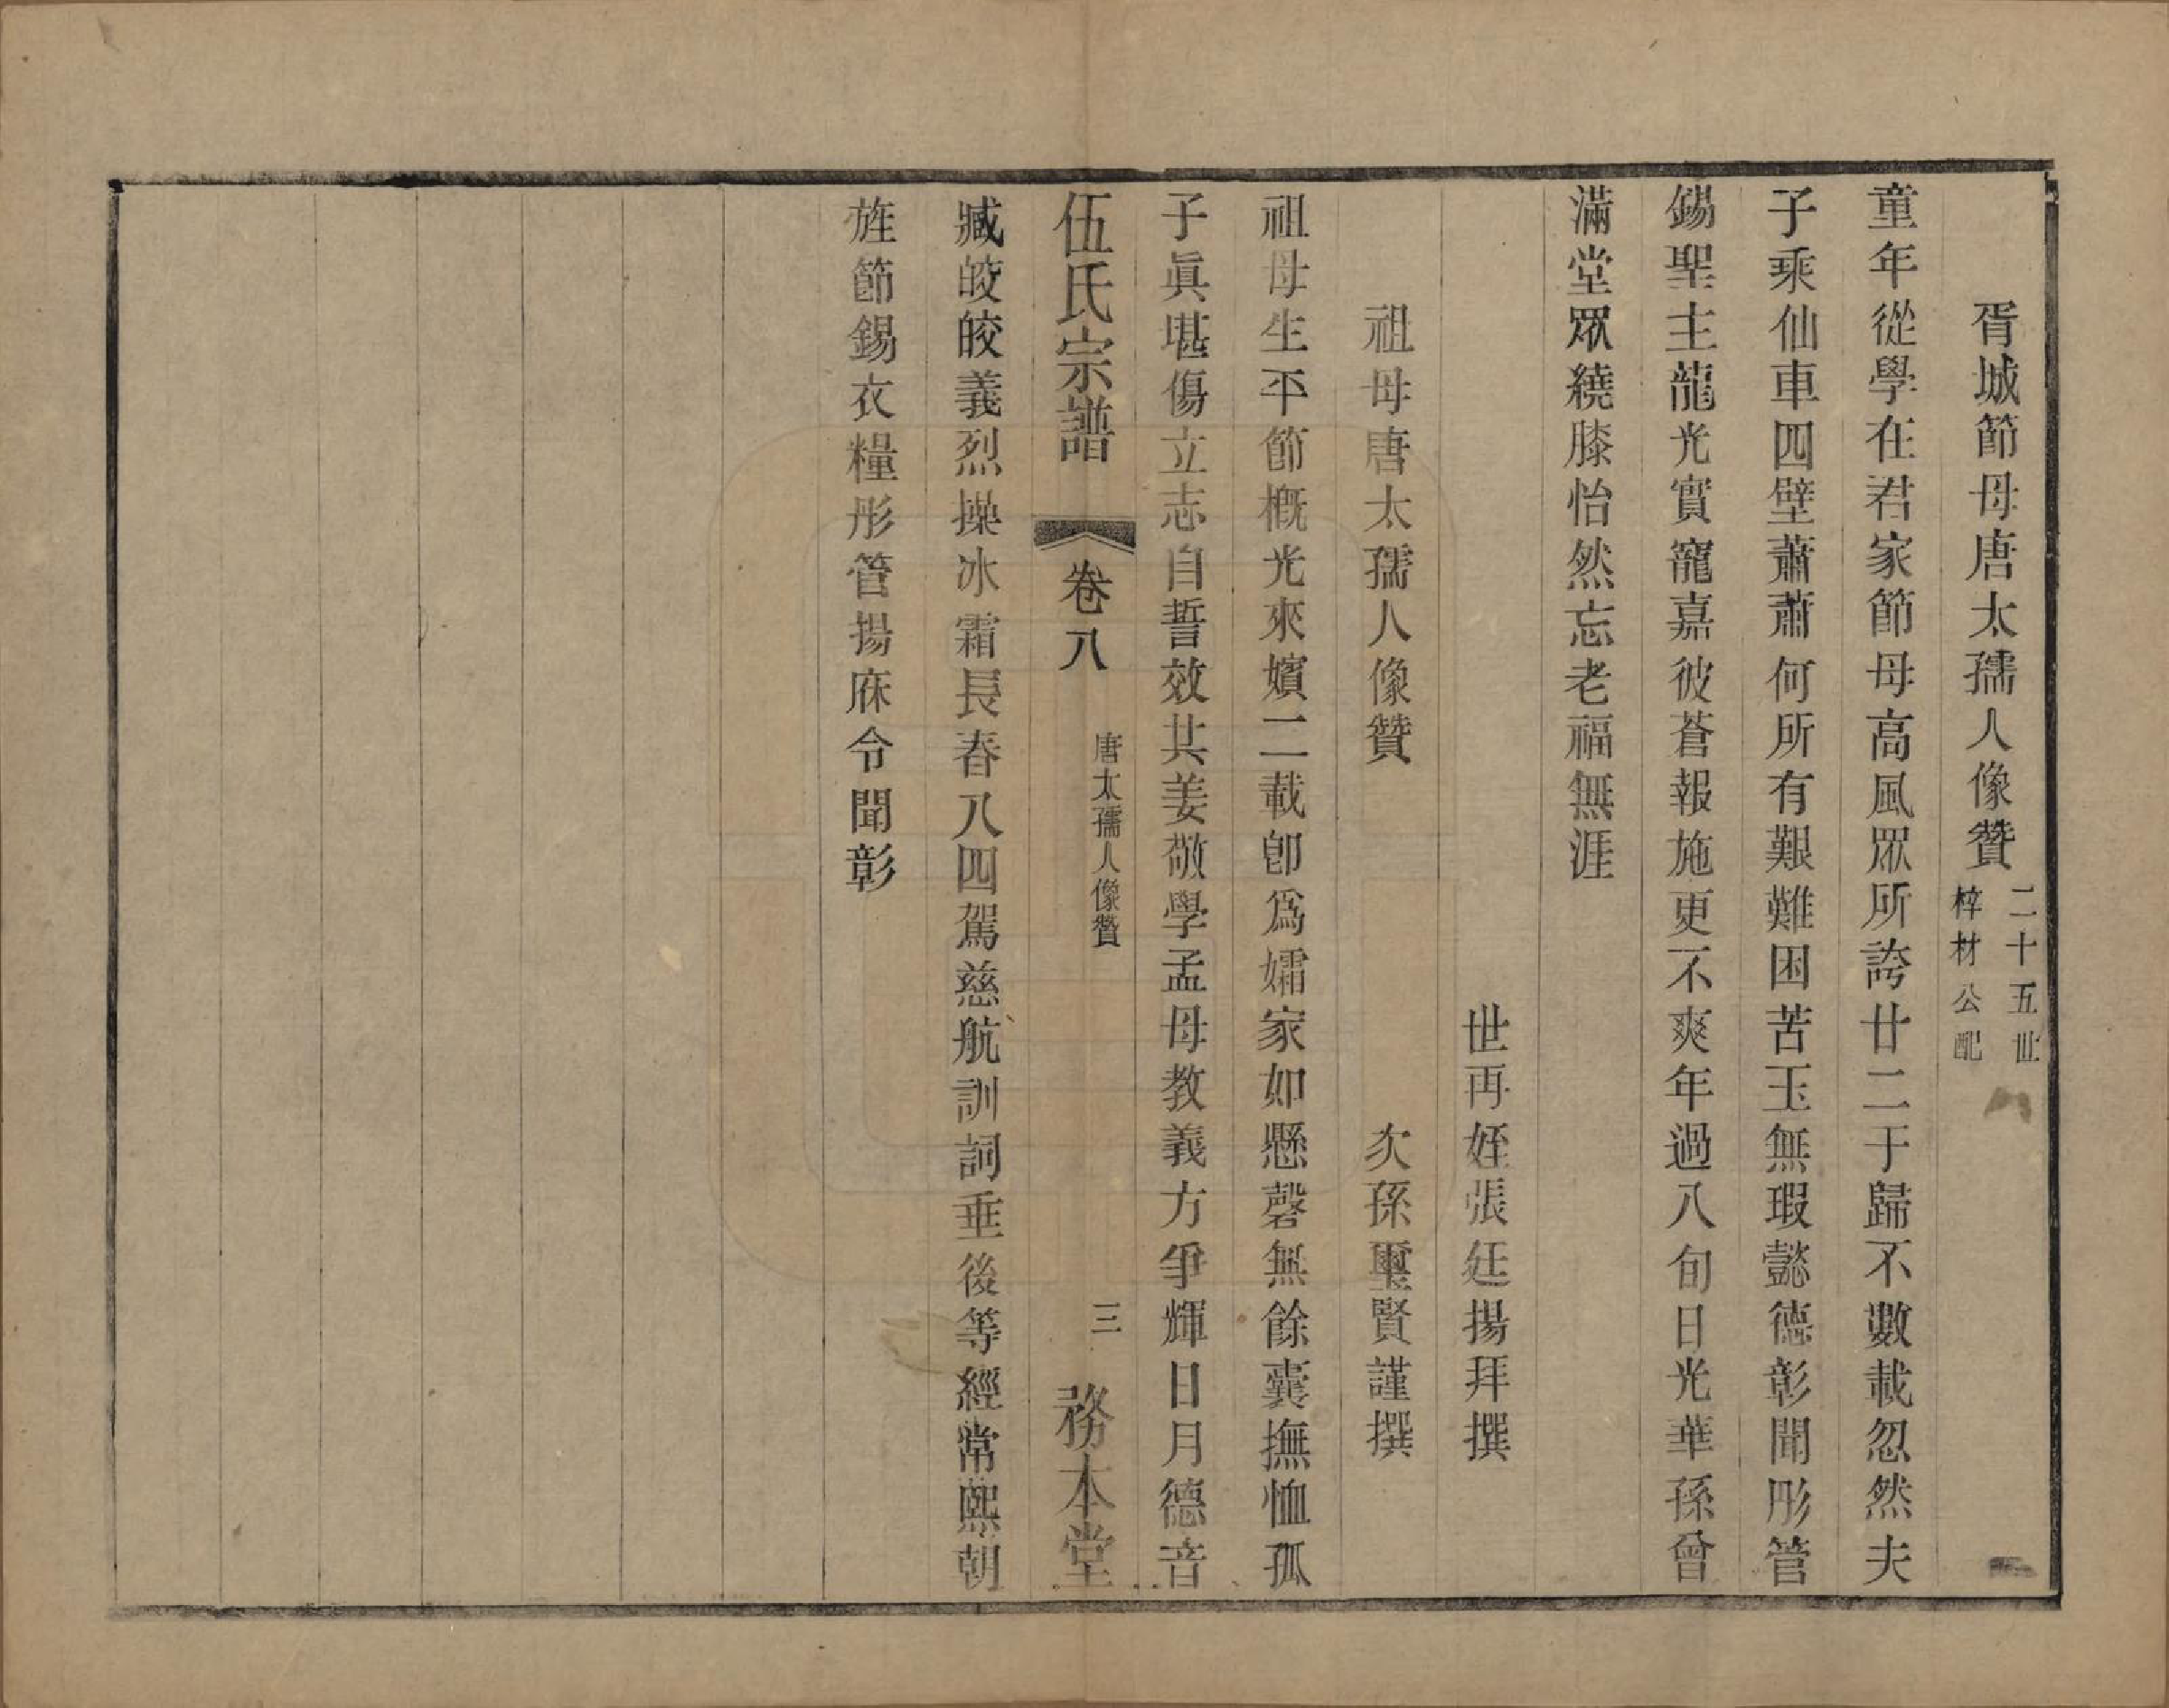 胥城節母唐太孺人像贊 二十五世 梓材公配
童年從學在君家節母高風眾所誇廿二于歸不數載忽然夫
子乘仙車四壁蕭蕭何所有艱難困苦玉無瑕懿德彰聞彤管
錫聖主龍光實寵嘉彼蒼報施更不爽年過八旬日光華孫曾
滿堂眾繞膝怡然忘老福無涯
世再姪張廷揚拜撰
祖母唐太孺人像贊 次孫璽賢謹撰
祖母生平節概光來嬪二載卽爲孀家如懸磬無餘囊撫恤孤
子眞堪傷立志自誓效共姜敬學孟母教義方爭輝日月德音
伍氏宗譜 卷八 唐太孺人像贊 三 務本堂
臧皎皎義烈操冰霜長春八四駕慈航訓詞垂後等經常熙朝
旌節錫衣糧彤管揚庥令聞彰